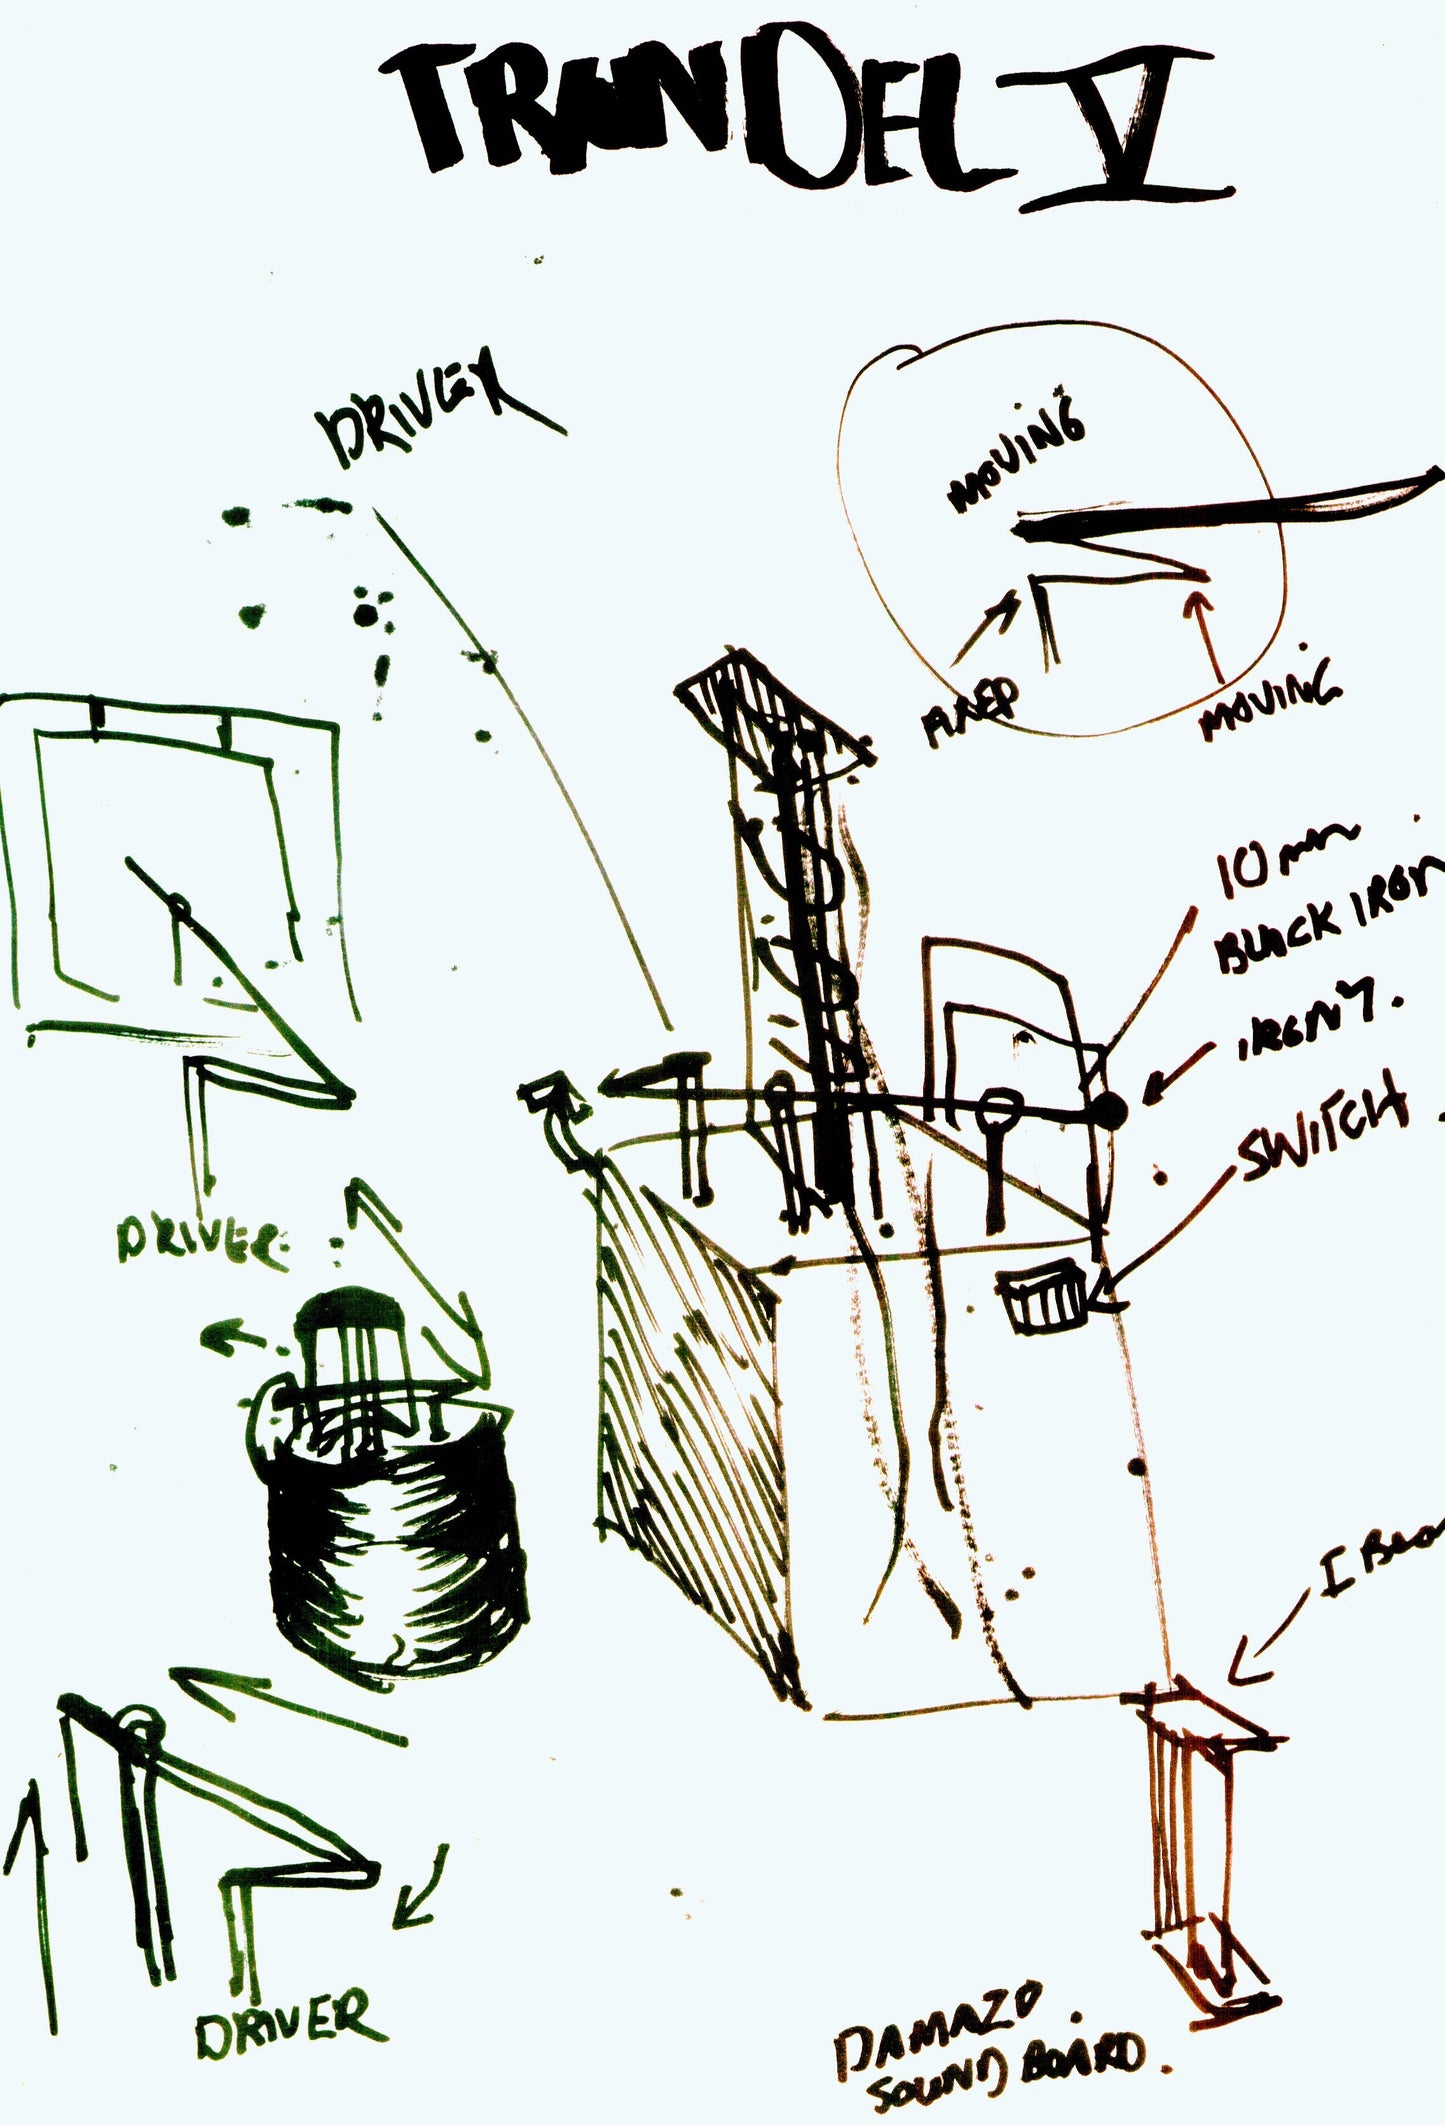 TRANDEL V
DRIVER
MOVING
FIXED
MOVING
10 mm
BLACK IRON
SWITCH
DRIVER
I Bea
DRIVER
DAMAZO
SOUND BOARD.